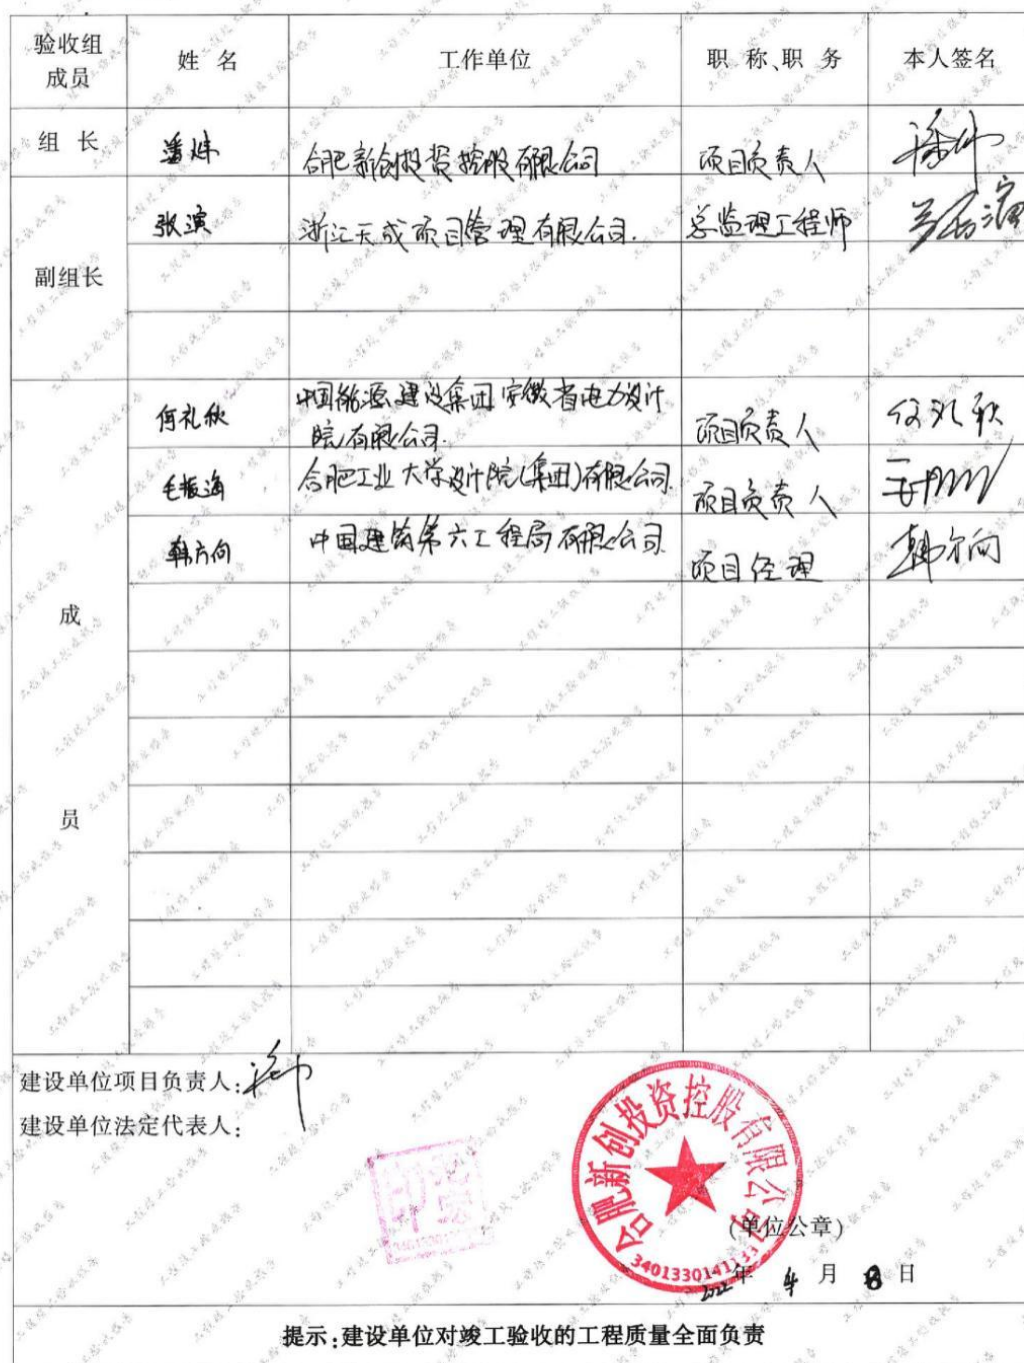 验收组成员 姓 名 工作单位 职 称、职 务 本人签名
组 长 潘炜 合肥新创投资控股有限公司 项目负责人
副组长 张演 浙江天成项目管理有限公司. 总监理工程师
成员
何礼秋 中国能源建设集团安徽省电力设计院有限公司. 项目负责人 何礼秋
毛振海 合肥工业大学设计院(集团)有限公司. 项目负责人
韩方向 中国建筑第六工程局有限公司 项目经理 韩方向
建设单位项目负责人:
建设单位法定代表人:
合肥新创投资控股有限公司
3401330141133
(单位公章)
2022年 4 月 8 日
提示:建设单位对竣工验收的工程质量全面负责
工程竣工验收报告